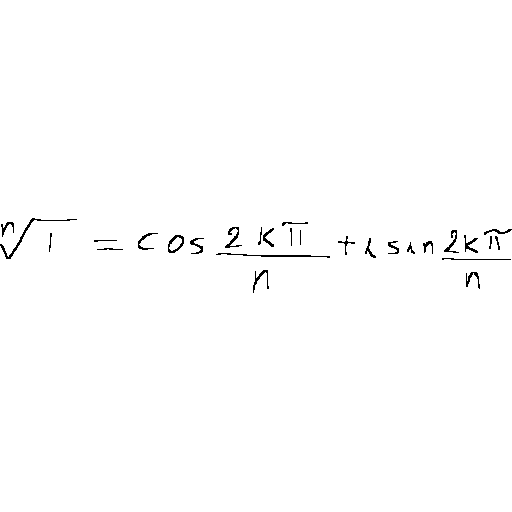 \sqrt[n]{1} = \cos \frac{2k\pi}{n} + i \sin \frac{2k\pi}{n}